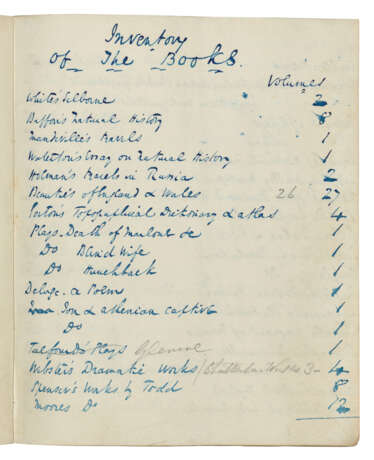 Inventory
of The Books.
Volumes
White's Selborne 2
Buffon's Natural History 8
Mandeville's Travels 1
Waterton's Essay on Natural History 1
Holman's Travels in Russia 2
Beauties of England & Wales 26 27
Topographical Dictionary & atlas 4
Plays. Death of Marlowe &c 1
Do Blind Wife 1
Do Hunchback 1
Deluge. a Poem 1
Ion & athenian captive 1
Do 1
Talfourd's Plays 1
Webster's Dramatic Works 4
Spenser's Works by Todd 8
Moores Do 12